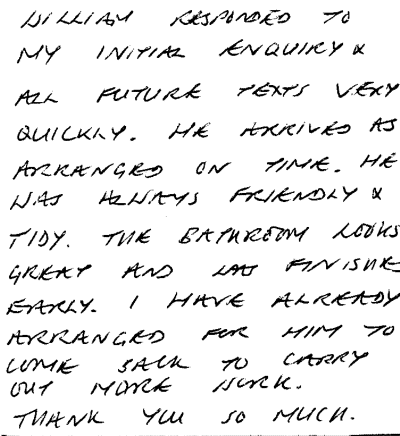 WILLIAM RESPONDED TO
MY INITIAL ENQUIRY &
ALL FUTURE TEXTS VERY
QUICKLY. HE ARRIVED AS
ARRANGED ON TIME. HE
WAS ALWAYS FRIENDLY &
TIDY. THE BATHROOM LOOKS
GREAT AND WAS FINISHED
EARLY. I HAVE ALREADY
ARRANGED FOR HIM TO
COME BACK TO CARRY
OUT MORE WORK.
THANK YOU SO MUCH.